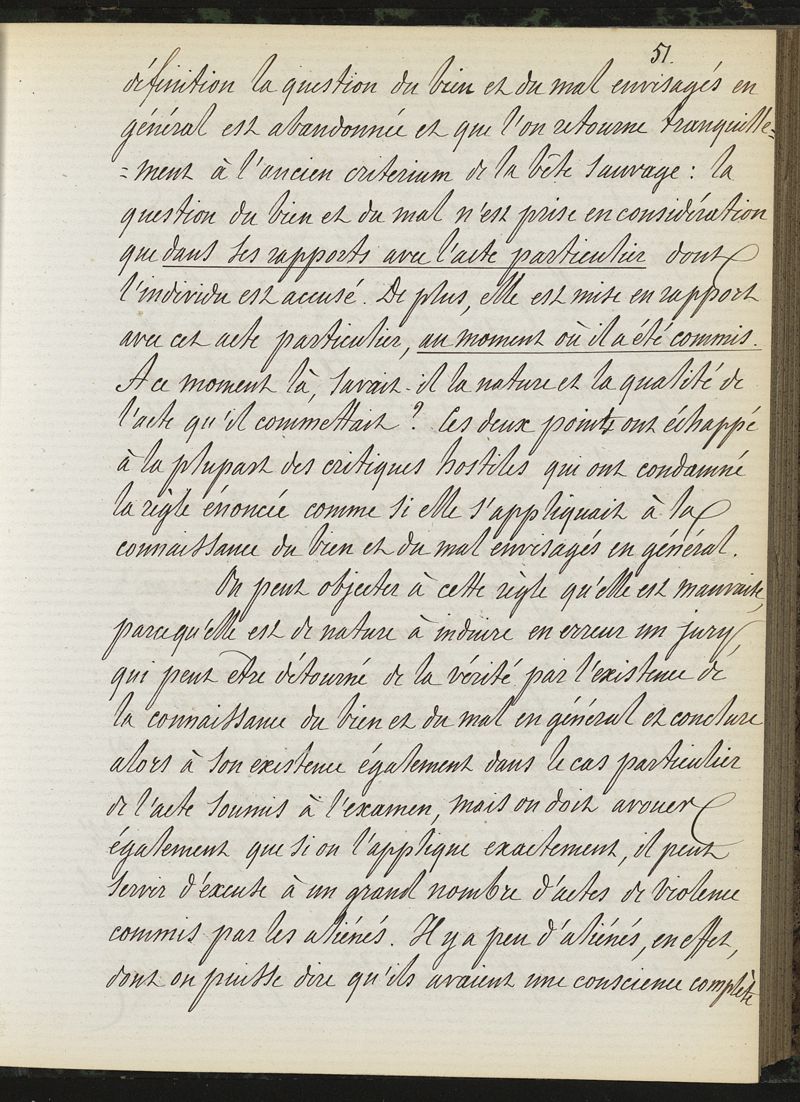 51.
définition la question du bien et du mal envisagés en
général est abandonnée et que l'on retourne tranquille=
=ment à l'ancien criterium de la bête sauvage : la
question du bien et du mal n'est prise en considération
que dans ses rapports avec l'acte particulier dont
l'individu est accusé. De plus, elle est mise en rapport
avec cet acte particulier, au moment où il a été commis.
A ce moment là, savait-il la nature et la qualité de
l'acte qu'il commettait ? Ces deux points ont échappé
à la plupart des critiques hostiles qui ont condamné
la règle énoncée comme si elle s'appliquait à la
connaissance du bien et du mal envisagés en général.
On peut objecter à cette règle qu'elle est mauvaise,
parcequ'elle est de nature à induire en erreur un jury
qui peut être détourné de la vérité par l'existence de
la connaissance du bien et du mal en général et conclure
alors à son existence également dans le cas particulier
de l'acte soumis à l'examen, mais on doit avouer
également que si on l'applique exactement, il peut
servir d'excuse à un grand nombre d'actes de violence
commis par les aliénés. Il y a peu d'aliénés, en effet,
dont on puisse dire qu'ils avaient une conscience complète